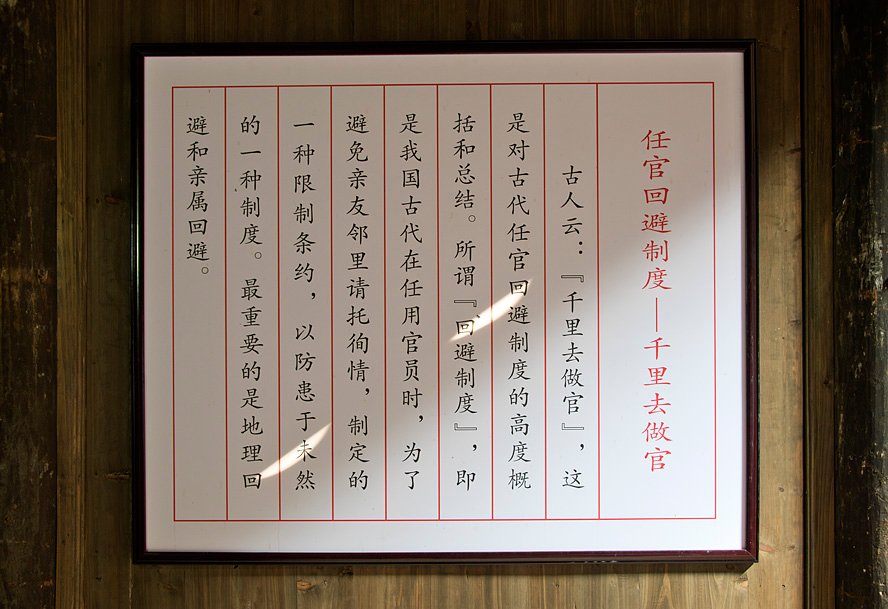 任官回避制度—千里去做官
古人云：『千里去做官』，这
是对古代任官回避制度的高度概
括和总结。所谓『回避制度』，即
是我国古代在任用官员时，为了
避免亲友邻里请托徇情，制定的
一种限制条约，以防患于未然
的一种制度。最重要的是地理回
避和亲属回避。